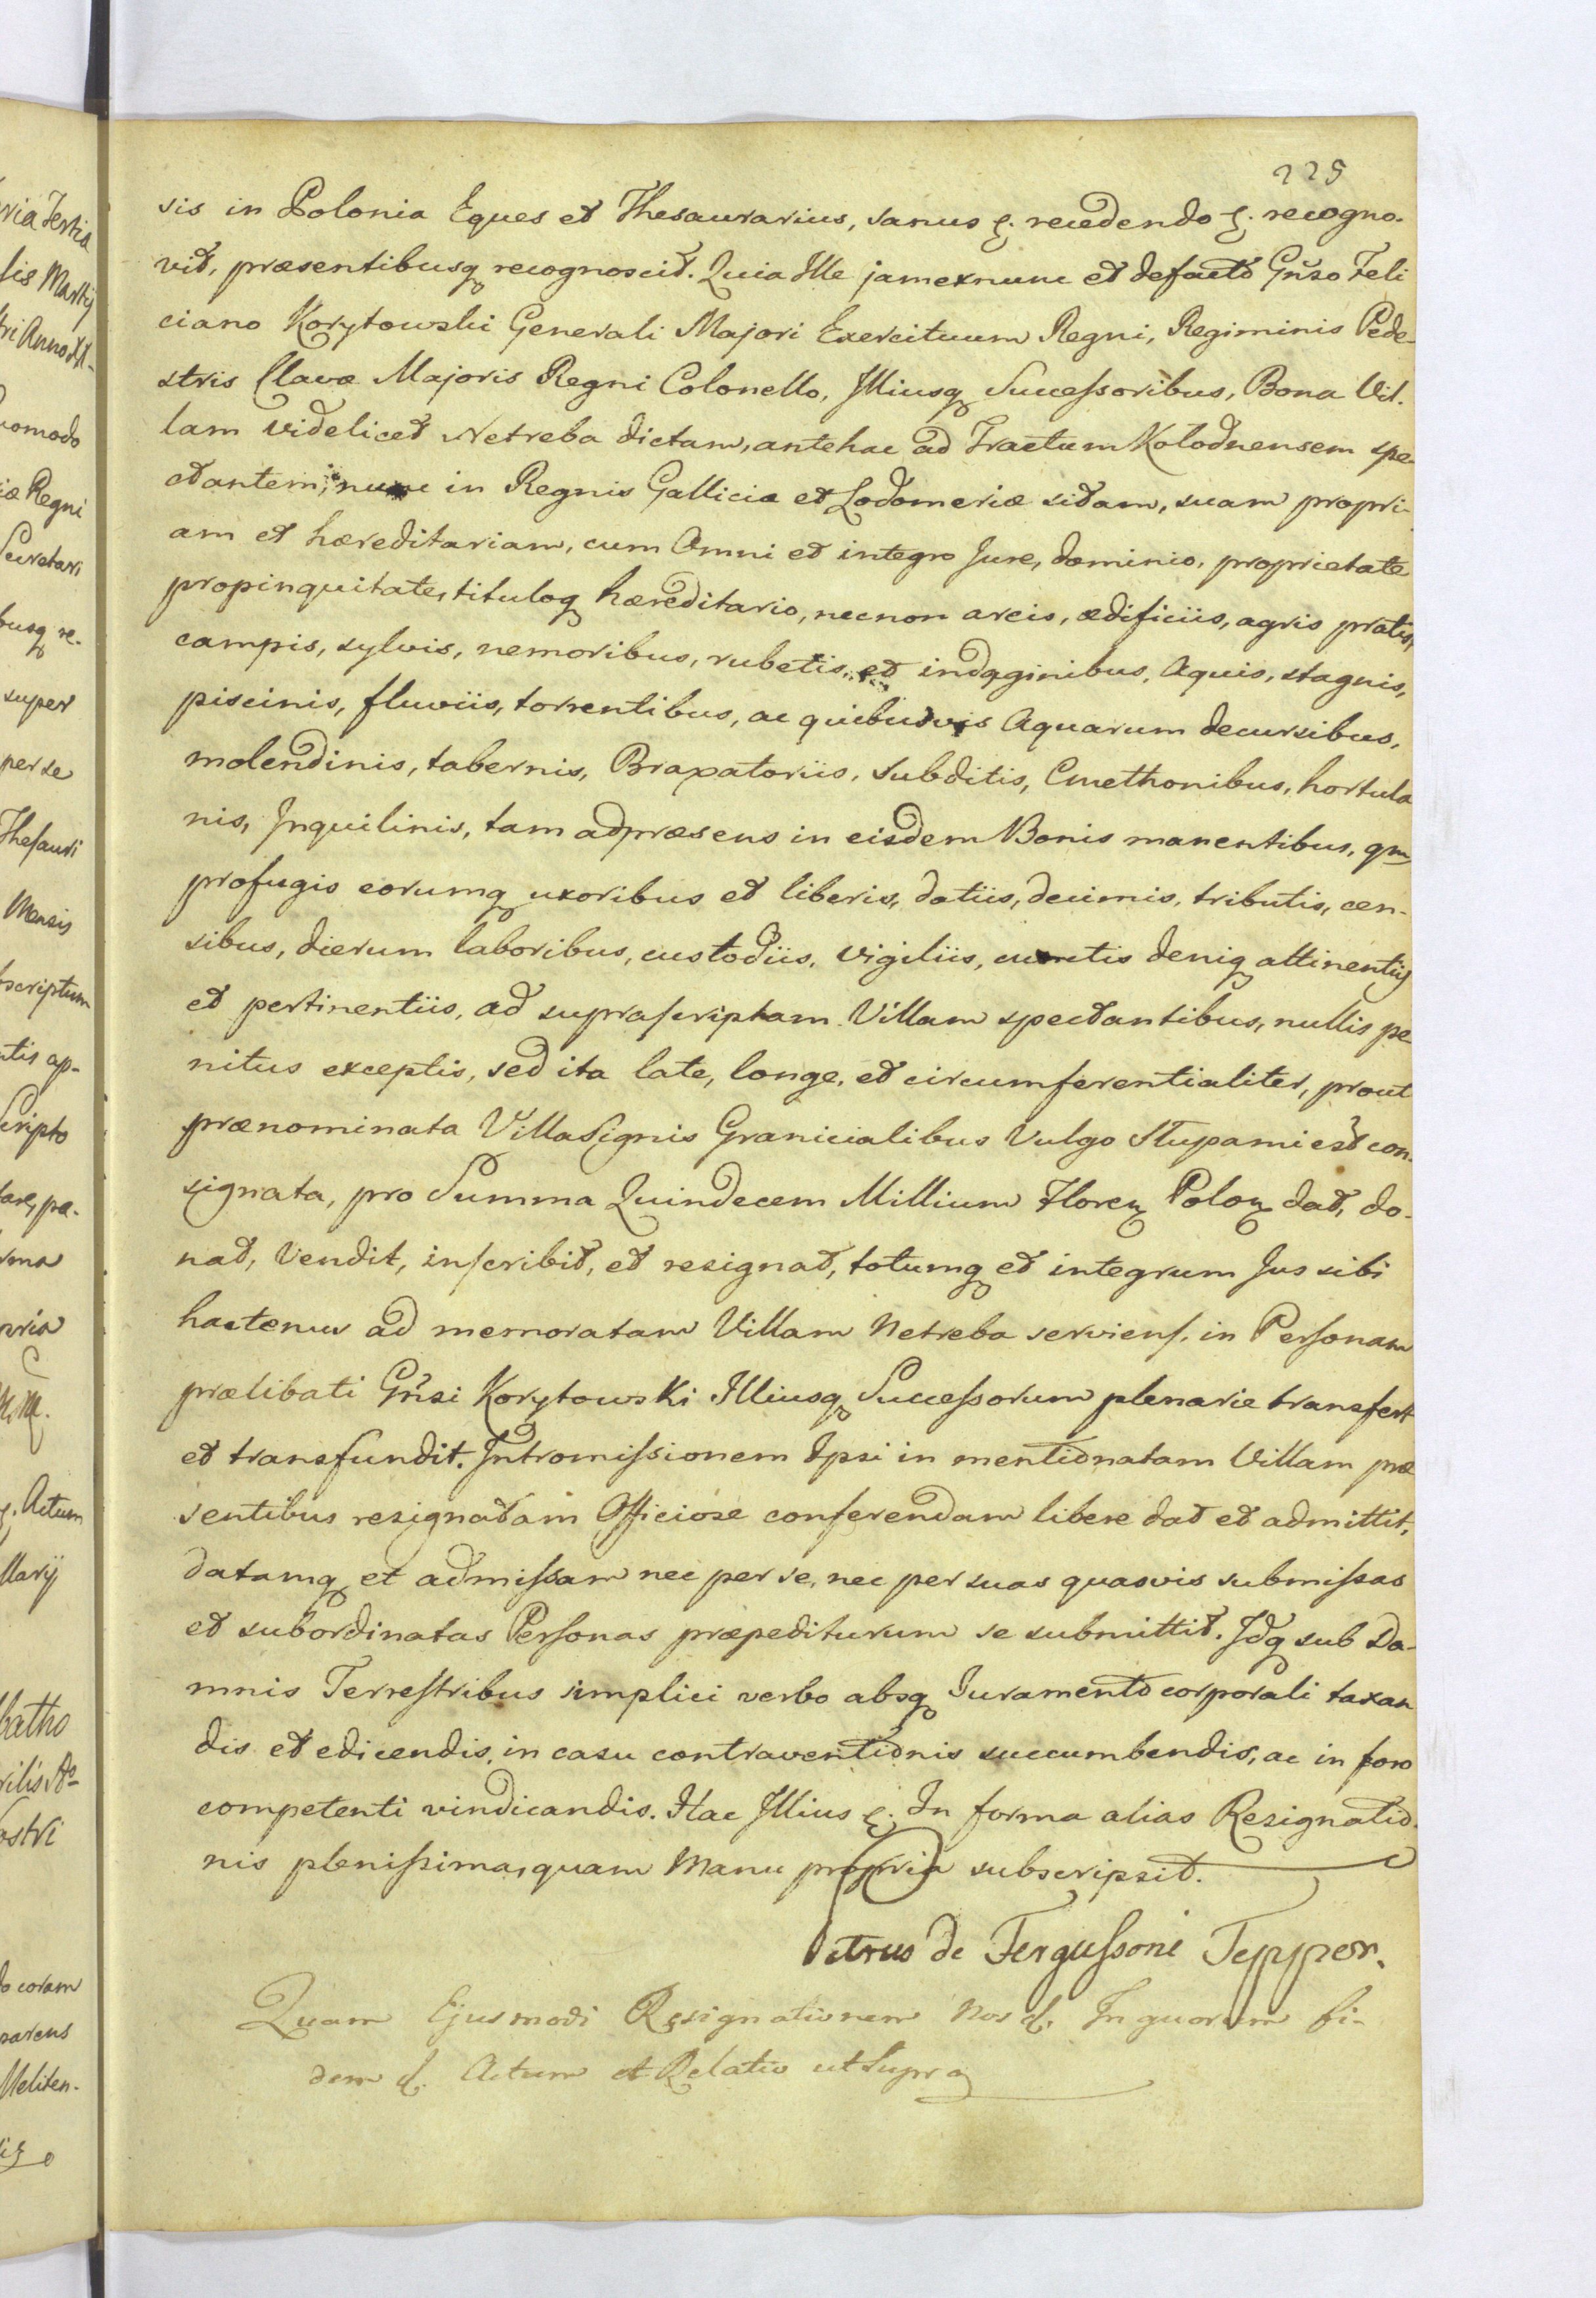 225
sis in Polonia Eques et Thesaurarius, sanus &. recedendo &. recogno-
vit, præsentibusq recognoscit. Quia Ille jamexnunc et defacto Gnso Feli
ciano Korytowski Generali Majori Exercituum Regni, Regiminis Pede-
stris Clavæ Majoris Regni Colonello, Illiusq Successoribus, Bona Vil-
lam videlicet Netreba dictam, antehac ad Tractum Kolodnensem spe-
ctantem, nunc in Regnis Galliciæ et Lodomeriæ sitam, suam propri-
am et hæreditariam, cum Omni et integro Jure, dominio, proprietate
propinquitate, tituloq hæreditario, necnon areis, ædificiis, agris pratis,
campis, sylvis, nemoribus, rubetis, et indaginibus, Aquis, stagnis,
piscinis, fluviis, torrentibus, ac quibusvis Aquarum decursibus,
molendinis, tabernis, Braxatoriis, Subditis, Cmethonibus, hortula
nis, Inquilinis, tam adpræsens in eisdem Bonis manentibus, qm
profugis eorumq uxoribus et liberis, datiis, decimis, tributis, cen-
sibus, dierum laboribus, custodiis, vigiliis, cunctis deniq attinentiis
et pertinentiis, ad suprascriptam Villam spectantibus, nullis pe
nitus exceptis, sed ita late, longe, et circumferentialiter, prout
prænominata Villa Signis Granicialibus Vulgo Słupami est con-
signata, pro Summa Quindecem Millium Floren Polon dat, do-
nat, Vendit, inscribit, et resignat, totumq et integrum Jus sibi
hactenus ad memoratam Villam Netreba serviens, in Personam
prælibati Gnsi Korytowski Illiusq Successorum plenarie transfert
et transfundit. Intromissionem Ipsi in mentionatam Villam præ
sentibus resignatam Officiose conferendam libere dat et admittit,
datamq et admissam nec per se, nec per suas quasvis submissas
et subordinatas Personas præpediturum se submittit. Idq sub Da-
mnis Terrestribus simplici verbo absq Juramento corporali taxan
dis et edicendis, in casu contraventionis succumbendis, ac in foro
competenti vindicandis. Hac Illius &. In forma alias Resignatio-
nis plenissima, quam Manu propria subscripsit.
Petrus de Fergussoni Tepper.
Quam Ejusmodi Resignationem Nos &. In quorum fi-
dem &. Actum et Relatio ut Supra